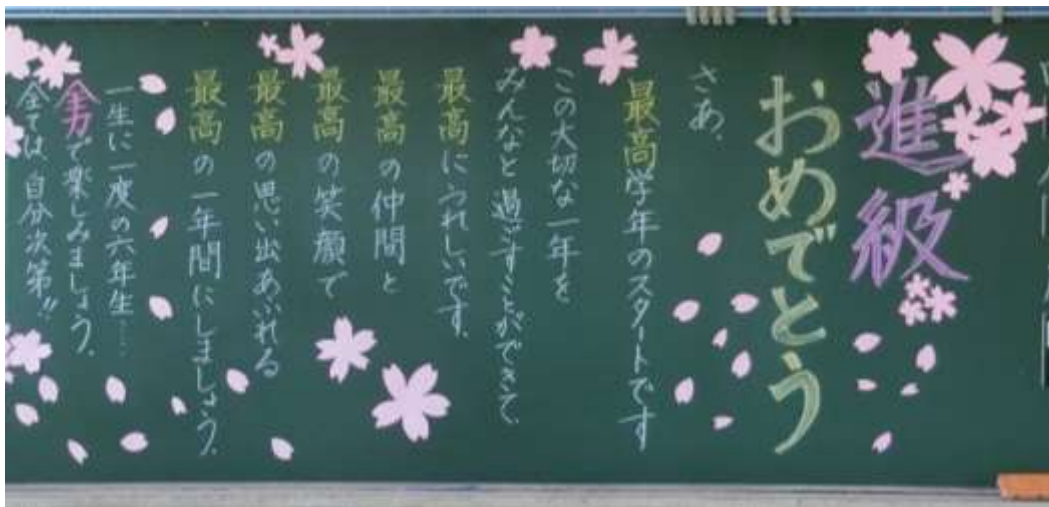 進級
おめでとう
さあ、
最高学年のスタートです
この大切な一年を
みんなと過ごすことができて
最高にうれしいです。
最高の仲間と
最高の笑顔で
最高の思い出あふれる
最高の一年間にしましょう。
一生に一度の六年生…
全力で楽しみましょう。
全ては自分次第!!